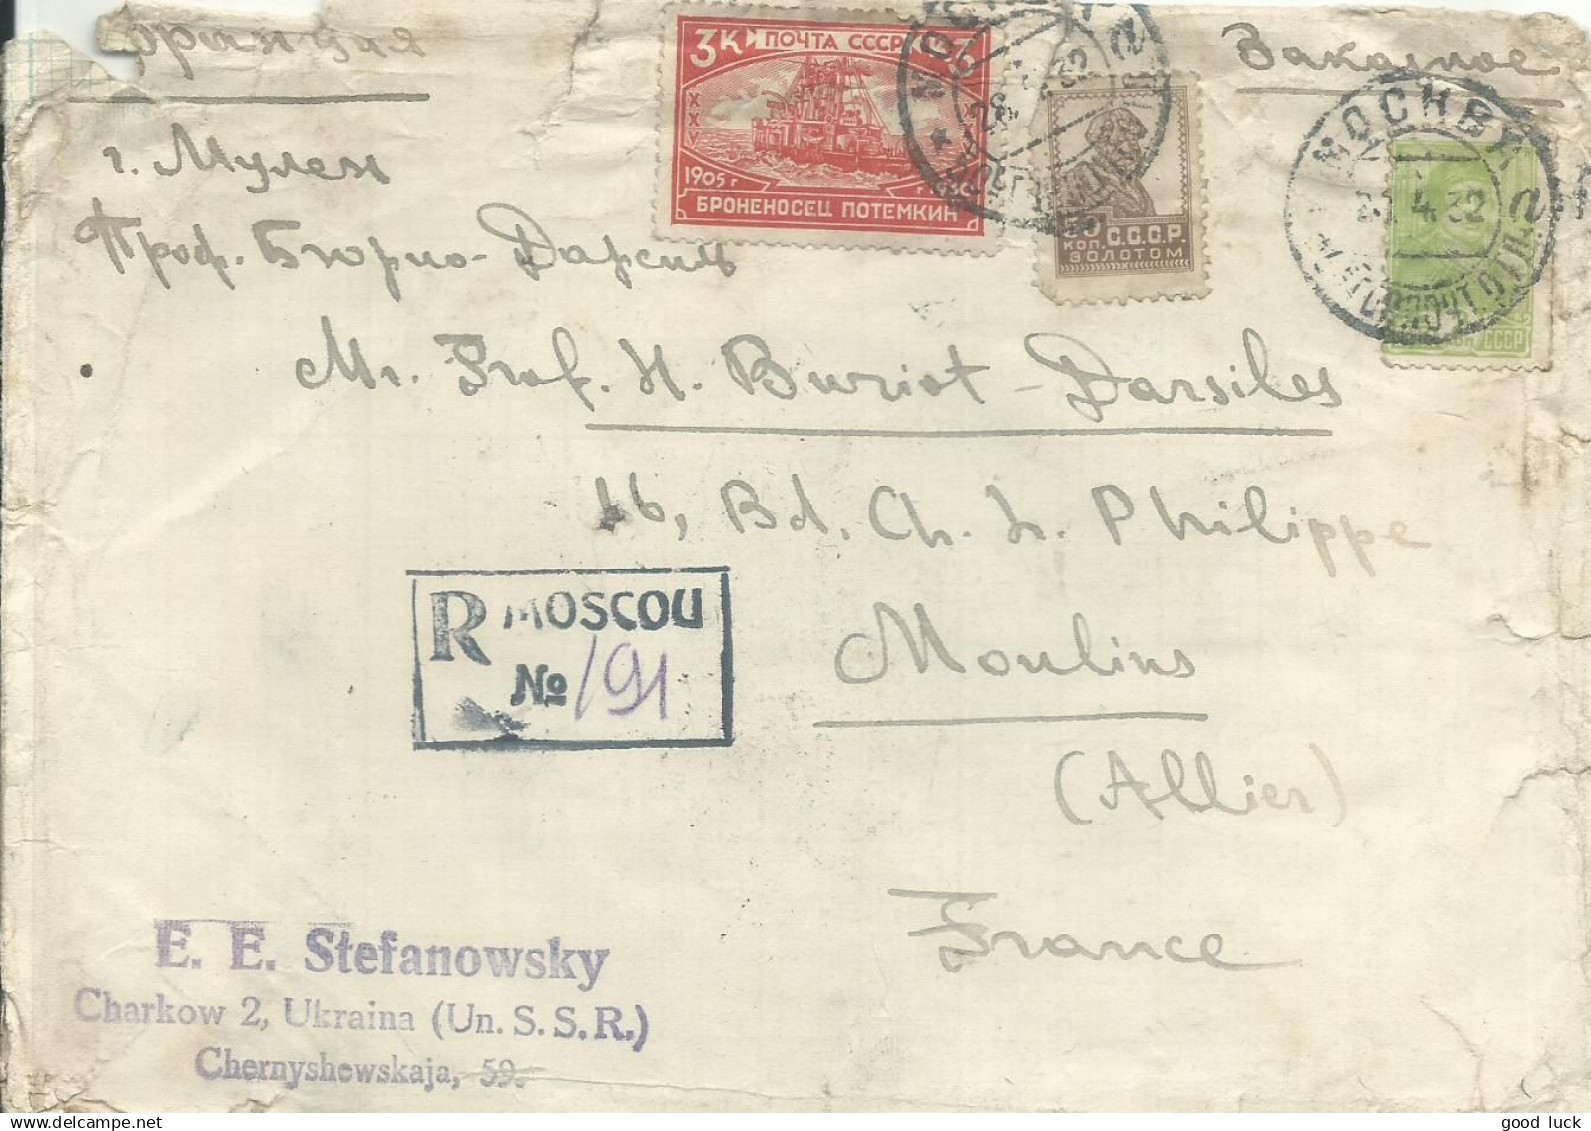 Франция
Заказное
3К ПОЧТА СССР К3
XXV
1905 г
БРОНЕНОСЕЦ ПОТЕМКИН
МОСКВА
КОП. С.С.С.Р.
ЗОЛОТОМ
МОСКВА
4 32
СССР
г. Мулен
Проф. Бюрио-Дарсиль
Mr. Prof. H. Buriot-Darsiles
16, Bd. Ch. L. Philippe
Moulins
(Allier)
France
R MOSCOU
№ 191
E. E. Stefanowsky
Charkow 2, Ukraina (Un. S. S. R.)
Chernyshewskaja, 59.
good luck